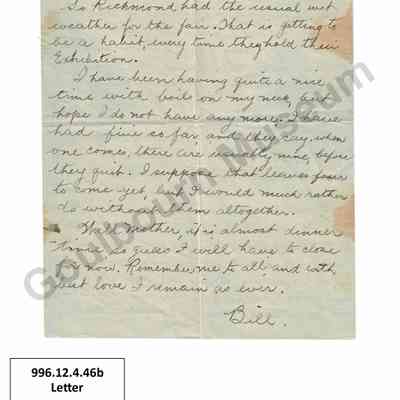 So Richmond had the usual wet
weather for the fair. That is getting to
be a habit, every time they hold their
Exhibition.
I have been having quite a nice
time with boils on my neck, and
hope I do not have any more. I have
had five so far, and they say, when
one comes, there are usually nine, before
they quit. I suppose that leaves four
to come yet, but I would much rather
do without them altogether.
Well mother, it is almost dinner
time so guess I will have to close
for now. Remember me to all and with
best love I remain as ever.
Bill.
Goulbourn Museum
996.12.4.46b
Letter